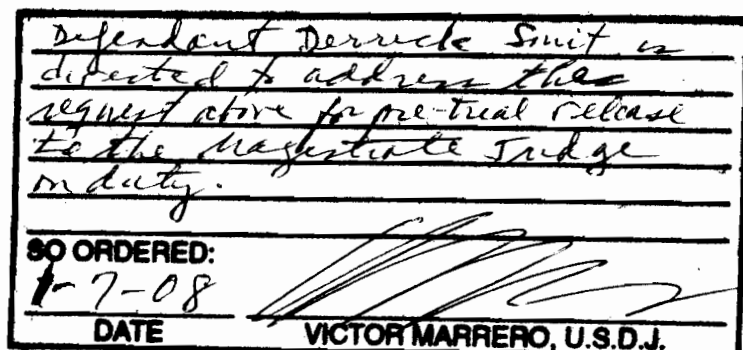 Defendant Derrick Smit is
directed to address the
request above for pre-trial release
to the Magistrate Judge
on duty.
SO ORDERED:
1-7-08
DATE VICTOR MARRERO, U.S.D.J.